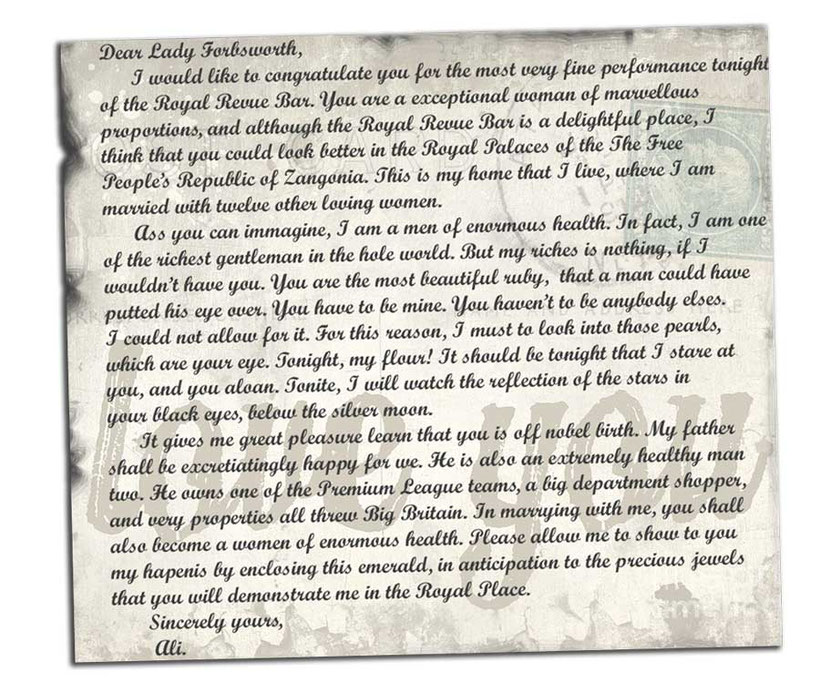 Dear Lady Forbsworth,
I would like to congratulate you for the most very fine performance tonight
of the Royal Revue Bar. You are a exceptional woman of marvellous
proportions, and although the Royal Revue Bar is a delightful place, I
think that you could look better in the Royal Palaces of the The Free
People's Republic of Zangonia. This is my home that I live, where I am
married with twelve other loving women.
Ass you can immagine, I am a men of enormous health. In fact, I am one
of the richest gentleman in the hole world. But my riches is nothing, if I
wouldn't have you. You are the most beautiful ruby, that a man could have
putted his eye over. You have to be mine. You haven't to be anybody elses.
I could not allow for it. For this reason, I must to look into those pearls,
which are your eye. Tonight, my flour! It should be tonight that I stare at
you, and you aloan. Tonite, I will watch the reflection of the stars in
your black eyes, below the silver moon.
It gives me great pleasure learn that you is off nobel birth. My father
shall be excretiatingly happy for we. He is also an extremely healthy man
two. He owns one of the Premium League teams, a big department shopper,
and very properties all threw Big Britain. In marrying with me, you shall
also become a women of enormous health. Please allow me to show to you
my hapenis by enclosing this emerald, in anticipation to the precious jewels
that you will demonstrate me in the Royal Place.
Sincerely yours,
Ali.
love you